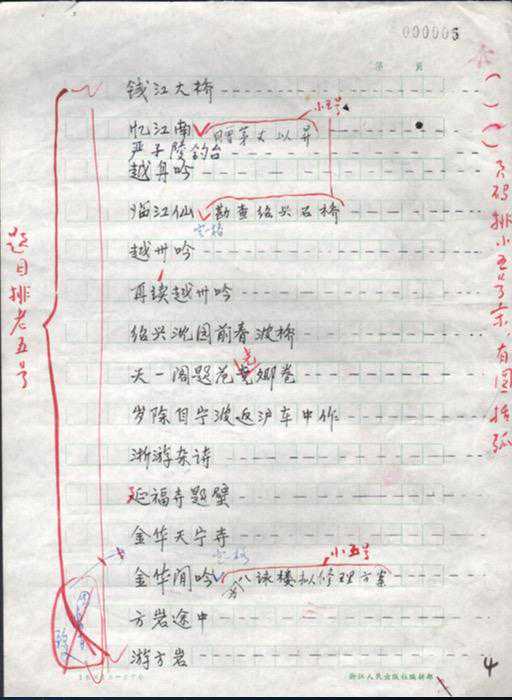 000005
第 页
钱江大桥
忆江南 赠茅大以昇
小五号
严子陵钓台
越舟吟
临江仙 勘查绍兴古桥
空格
越州吟
再续越州吟
绍兴沈园前春波桥
天一阁题范尧卿卷
尧
岁除自宁波返沪车中作
浙游杂诗
延福寺题壁
金华天宁寺
空格
小五号
金华闲吟 为八咏楼拟修理方案
方岩途中
游方岩
题目排老五号
(一)(页码排小五号京,有圆括弧
4
浙江人民出版社编辑部